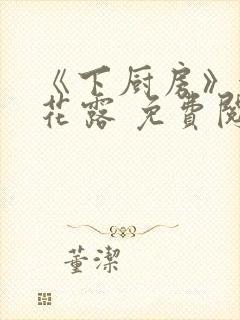 《下厨房》
花露 免費閱
董潔